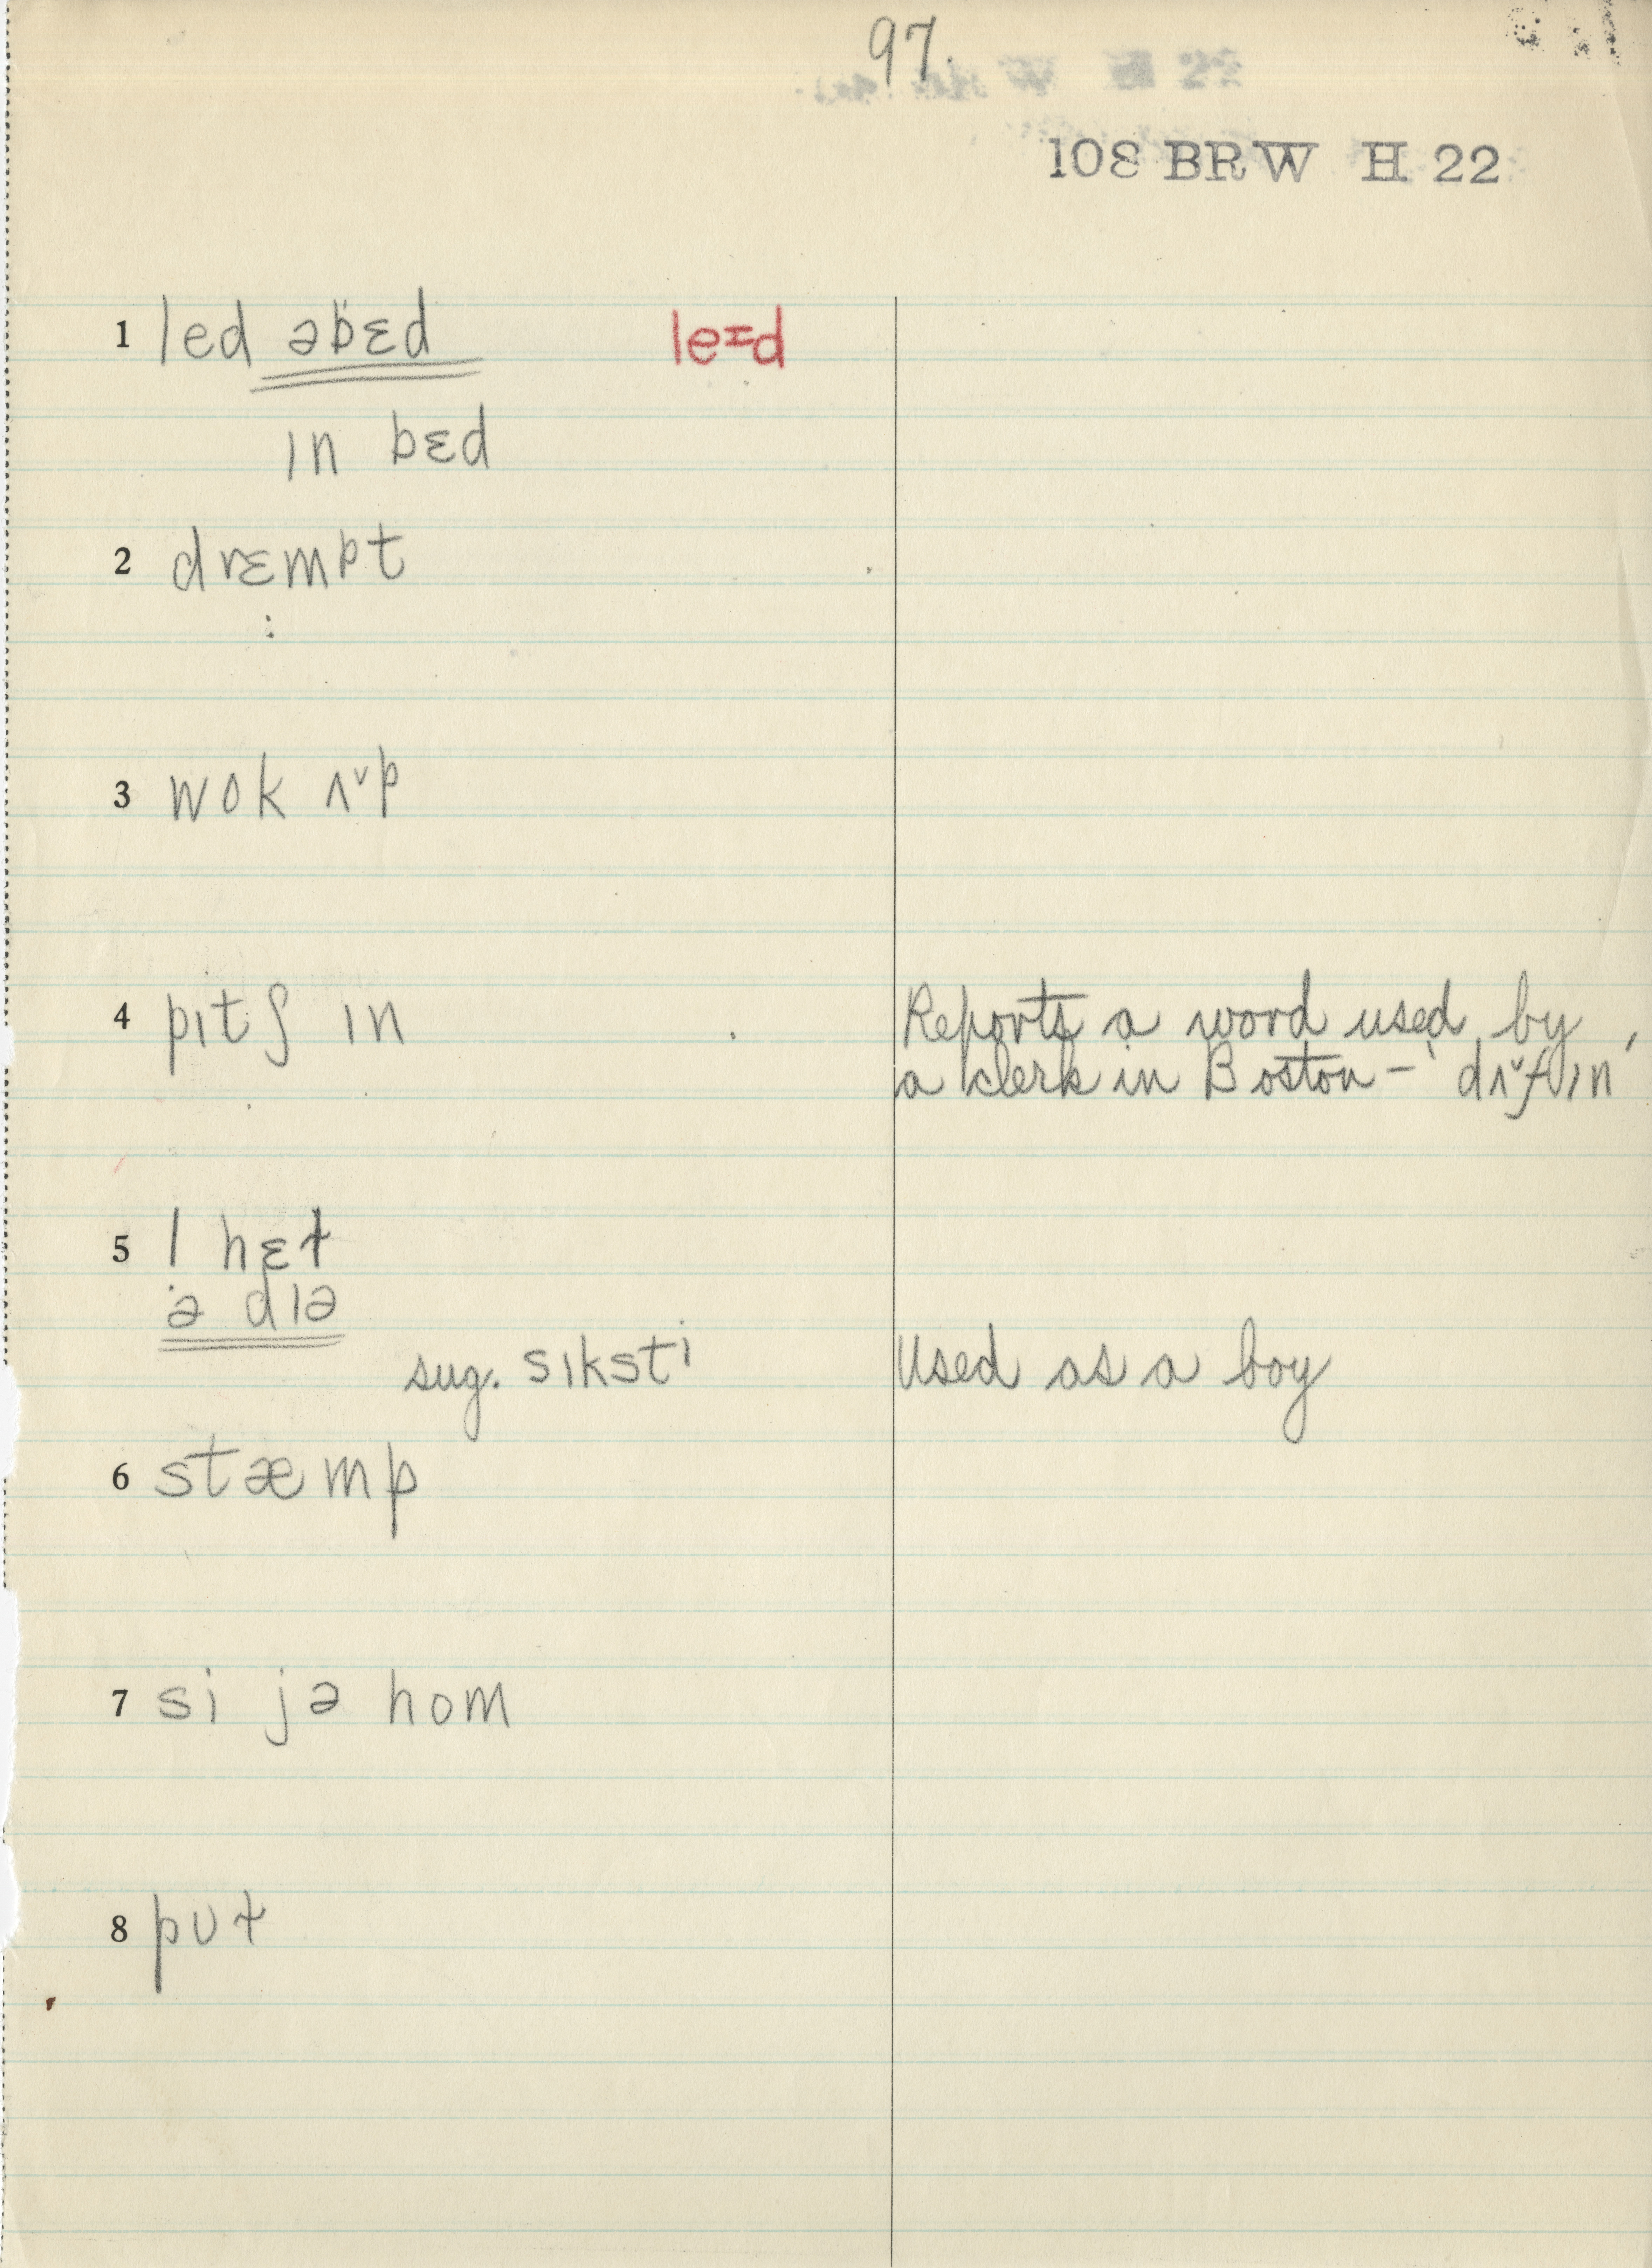 97.
108 BRW H 22
1 led əbɛd le=d
ın bɛd
2 drɛmpt
3 wok ʌ˅p
4 pıtʃ ın Reports a word used by
a clerk in Boston – 'dʌ˅f ın'
5 | hɛt
ə dıə
sug. sıksti Used as a boy
6 stæmp
7 si jə hom
8 pʊt